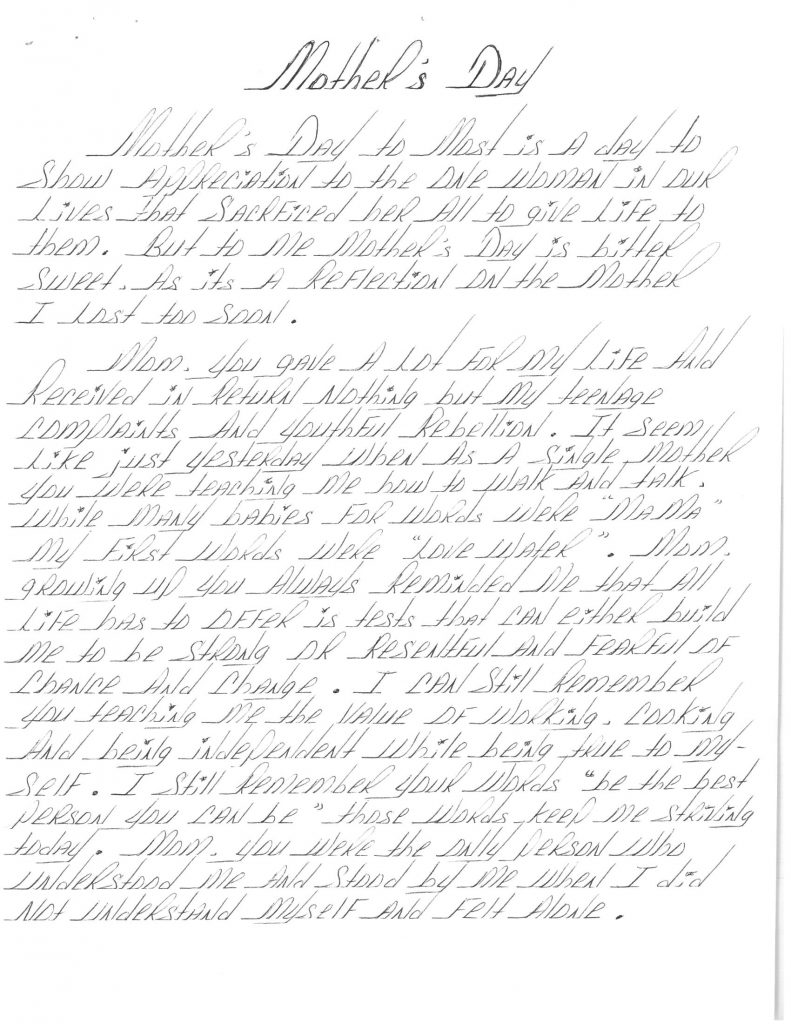 Mother's Day
Mother's Day to Most is A day to
Show Appreciation to the one woman in our
lives that SACRFiced her All to give life to
them. But to Me Mother's Day is bitter
Sweet. As its A Reflection on the Mother
I lost too soon.
Mom, you gave A lot for My life And
Received in Return Nothing but My teenage
complaints And youthful Rebellion. It seem
like just yesterday when As A single Mother
you were teaching Me how to walk And talk.
While Many babies for words were "MAMA"
My First words were "love water". Mom,
growing up you Always Reminded Me that All
life has to offer is tests that can either build
Me to be strong or Resentful And Fearful of
Chance And Change. I can still Remember
you teaching Me the value of working, cooking
And being independent while being true to My-
self. I still Remember your words "be the best
person you can be" those words keep Me striving
today. Mom, you were the only person who
understood Me And stood by Me when I did
Not understand Myself And Felt Alone.